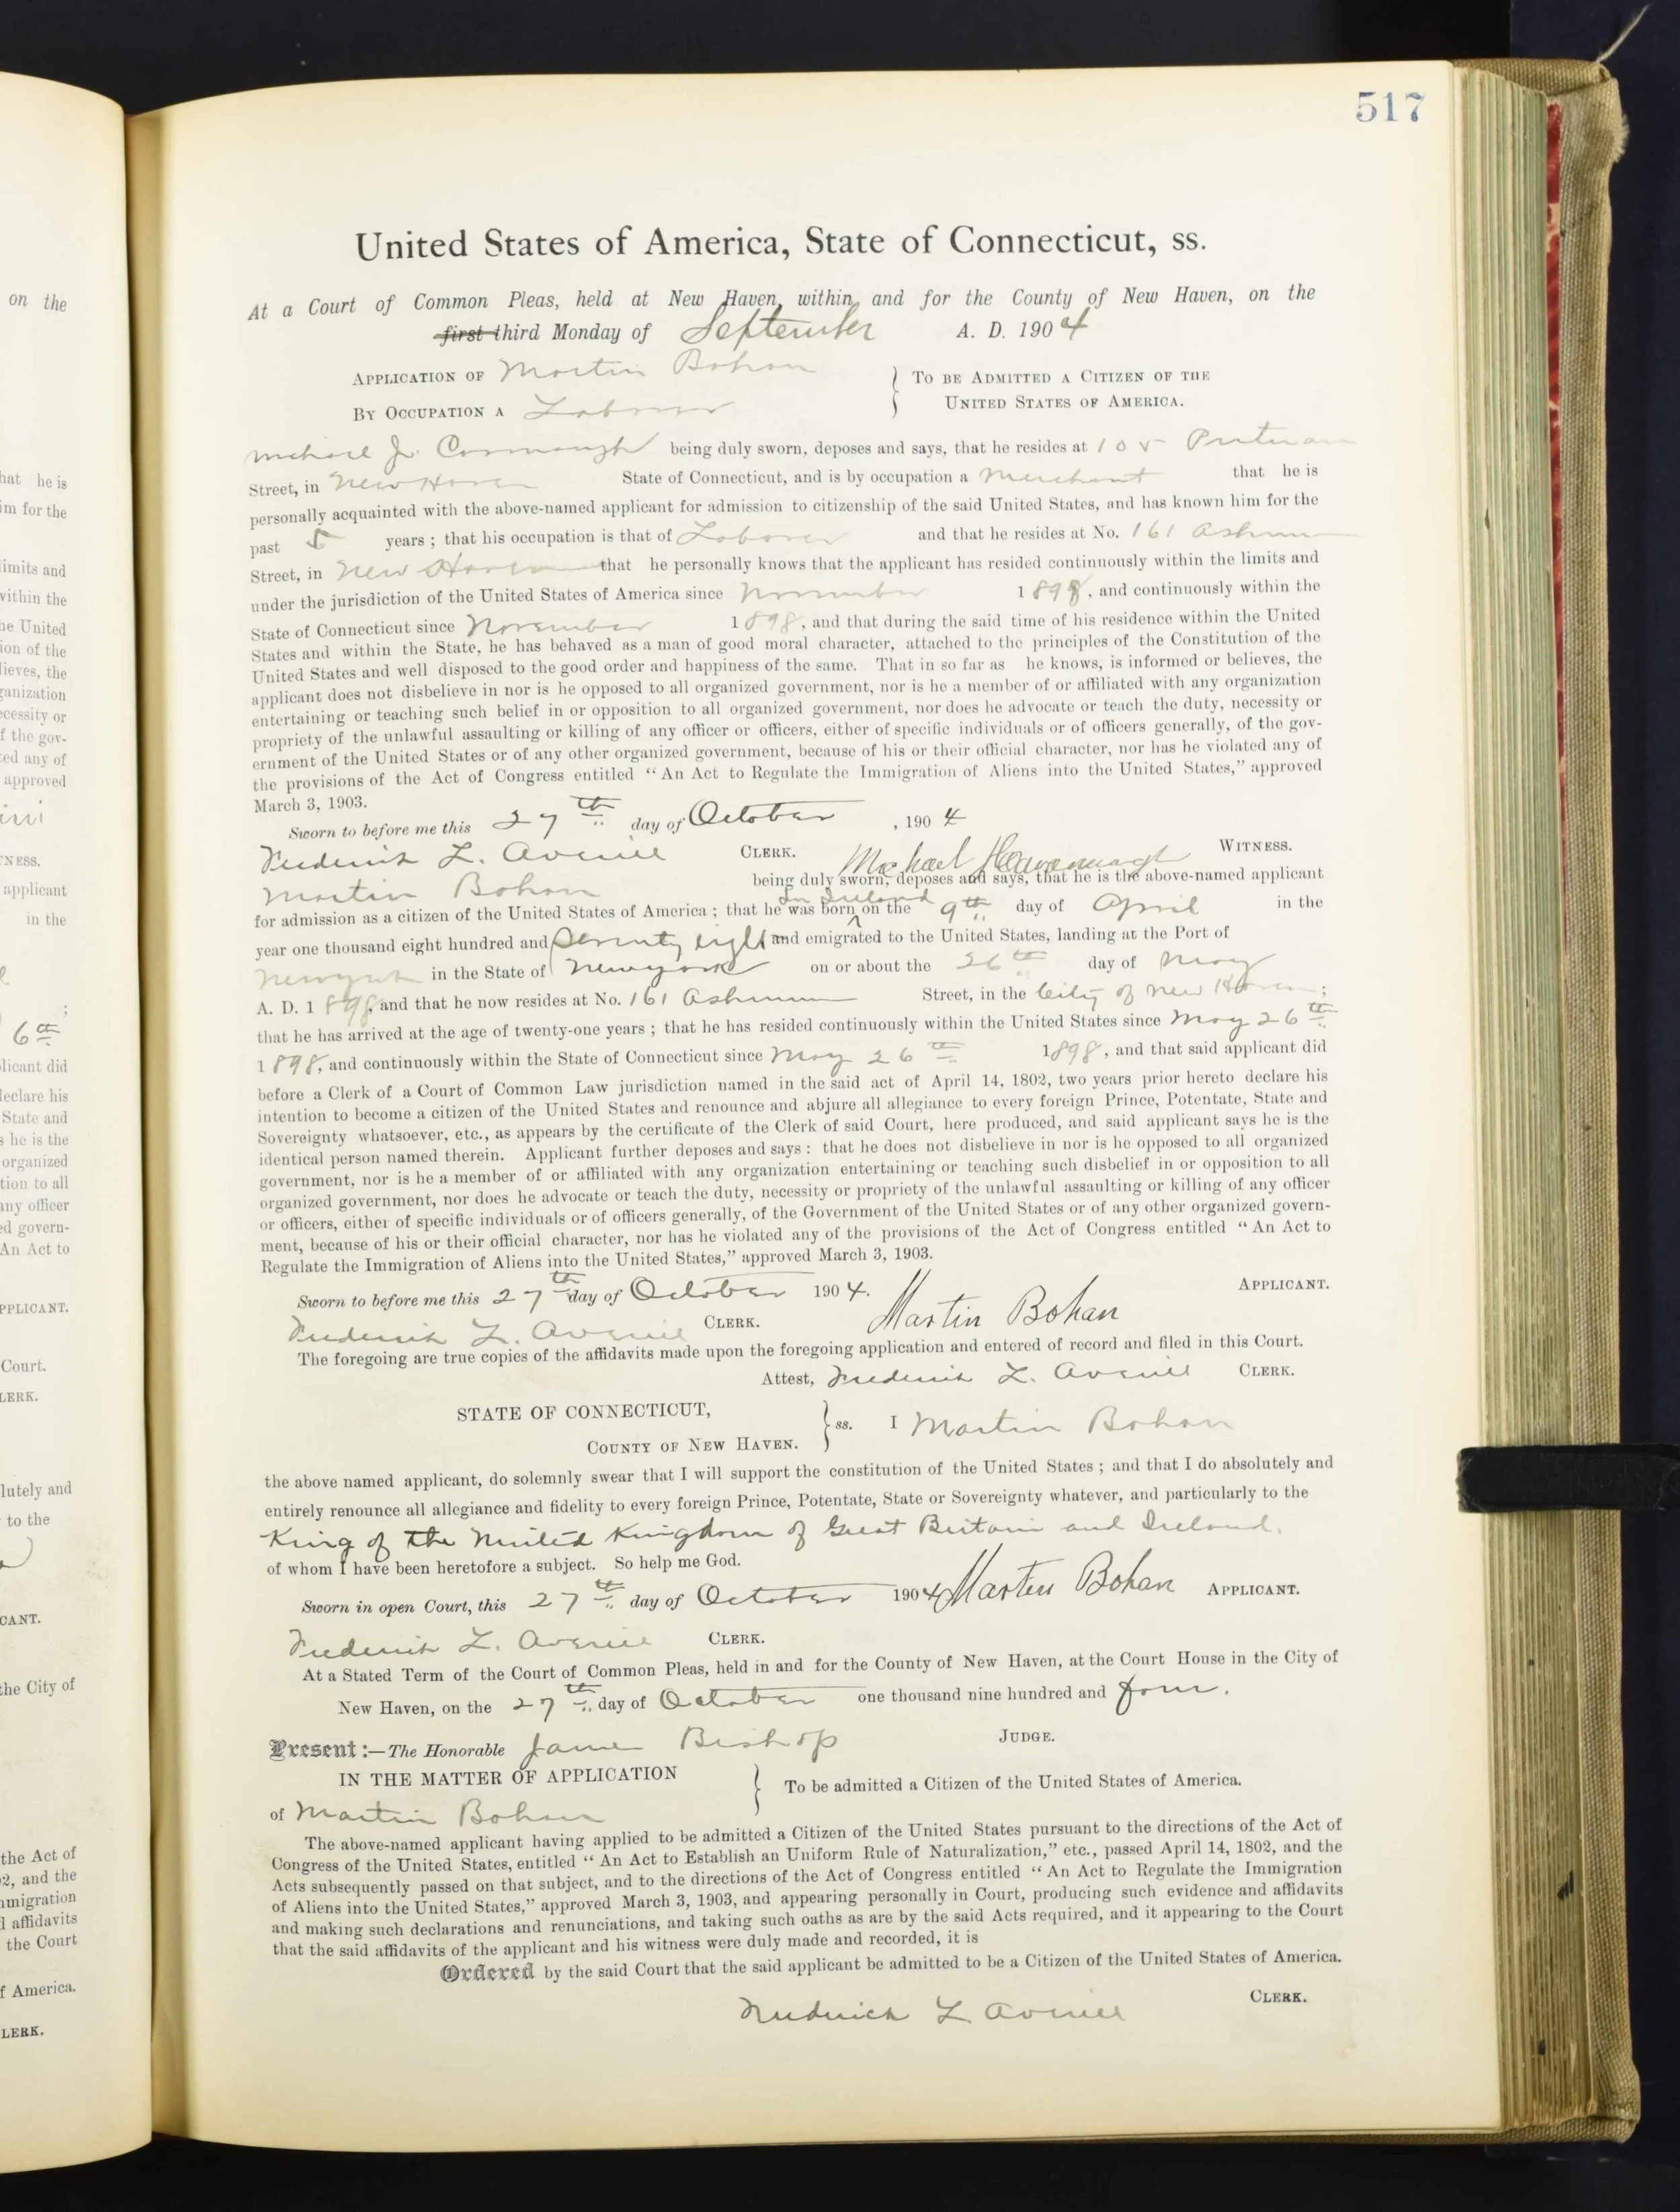 517
United States of America, State of Connecticut, ss.
At a Court of Common Pleas, held at New Haven, within and for the County of New Haven, on the
first third Monday of September A. D. 1904
APPLICATION OF Martin Bohan } TO BE ADMITTED A CITIZEN OF THE
BY OCCUPATION A Laborer UNITED STATES OF AMERICA.
Michael J. being duly sworn, deposes and says, that he resides at 105 Putnam
Street, in New Haven State of Connecticut, and is by occupation a Merchant that he is
personally acquainted with the above-named applicant for admission to citizenship of the said United States, and has known him for the
past 5 years; that his occupation is that of Laborer and that he resides at No. 161 Ashmun
Street, in New Haven that he personally knows that the applicant has resided continuously within the limits and
under the jurisdiction of the United States of America since November 1898, and continuously within the
State of Connecticut since November 1898, and that during the said time of his residence within the United
States and within the State, he has behaved as a man of good moral character, attached to the principles of the Constitution of the
United States and well disposed to the good order and happiness of the same. That in so far as he knows, is informed or believes, the
applicant does not disbelieve in nor is he opposed to all organized government, nor is he a member of or affiliated with any organization
entertaining or teaching such belief in or opposition to all organized government, nor does he advocate or teach the duty, necessity or
propriety of the unlawful assaulting or killing of any officer or officers, either of specific individuals or of officers generally, of the gov-
ernment of the United States or of any other organized government, because of his or their official character, nor has he violated any of
the provisions of the Act of Congress entitled "An Act to Regulate the Immigration of Aliens into the United States," approved
March 3, 1903.
Sworn to before me this 27th day of October, 1904
Frederick L. Averill CLERK. Michael J Cavanaugh WITNESS.
Martin Bohan being duly sworn, deposes and says, that he is the above-named applicant
for admission as a citizen of the United States of America; that he was born in Ireland on the 9th day of April in the
year one thousand eight hundred and Seventy eight and emigrated to the United States, landing at the Port of
New York in the State of New York on or about the 26th day of May
A. D. 1898, and that he now resides at No. 161 Ashmun Street, in the City of New Haven;
that he has arrived at the age of twenty-one years; that he has resided continuously within the United States since May 26th
1898, and continuously within the State of Connecticut since May 26th 1898, and that said applicant did
before a Clerk of a Court of Common Law jurisdiction named in the said act of April 14, 1802, two years prior hereto declare his
intention to become a citizen of the United States and renounce and abjure all allegiance to every foreign Prince, Potentate, State and
Sovereignty whatsoever, etc., as appears by the certificate of the Clerk of said Court, here produced, and said applicant says he is the
identical person named therein. Applicant further deposes and says: that he does not disbelieve in nor is he opposed to all organized
government, nor is he a member of or affiliated with any organization entertaining or teaching such disbelief in or opposition to all
organized government, nor does he advocate or teach the duty, necessity or propriety of the unlawful assaulting or killing of any officer
or officers, either of specific individuals or of officers generally, of the Government of the United States or of any other organized govern-
ment, because of his or their official character, nor has he violated any of the provisions of the Act of Congress entitled "An Act to
Regulate the Immigration of Aliens into the United States," approved March 3, 1903.
Sworn to before me this 27th day of October 1904. APPLICANT.
Frederick L. Averill CLERK. Martin Bohan
The foregoing are true copies of the affidavits made upon the foregoing application and entered of record and filed in this Court.
Attest, Frederick L. Averill CLERK.
STATE OF CONNECTICUT, } ss. I Martin Bohan
COUNTY OF NEW HAVEN.
the above named applicant, do solemnly swear that I will support the constitution of the United States; and that I do absolutely and
entirely renounce all allegiance and fidelity to every foreign Prince, Potentate, State or Sovereignty whatever, and particularly to the
King of the United Kingdom of Great Britain and Ireland.
of whom I have been heretofore a subject. So help me God.
Sworn in open Court, this 27th day of October 1904 Martin Bohan APPLICANT.
Frederick L. Averill CLERK.
At a Stated Term of the Court of Common Pleas, held in and for the County of New Haven, at the Court House in the City of
New Haven, on the 27th day of October one thousand nine hundred and four.
Present:—The Honorable James Bishop JUDGE.
IN THE MATTER OF APPLICATION } To be admitted a Citizen of the United States of America.
of Martin Bohan
The above-named applicant having applied to be admitted a Citizen of the United States pursuant to the directions of the Act of
Congress of the United States, entitled "An Act to Establish an Uniform Rule of Naturalization," etc., passed April 14, 1802, and the
Acts subsequently passed on that subject, and to the directions of the Act of Congress entitled "An Act to Regulate the Immigration
of Aliens into the United States," approved March 3, 1903, and appearing personally in Court, producing such evidence and affidavits
and making such declarations and renunciations, and taking such oaths as are by the said Acts required, and it appearing to the Court
that the said affidavits of the applicant and his witness were duly made and recorded, it is
Ordered by the said Court that the said applicant be admitted to be a Citizen of the United States of America.
Frederick L Averill CLERK.